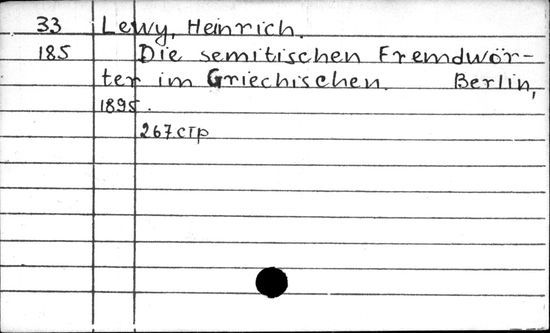 33 Lewy, Heinrich.
185 Die semitischen Fremdwör-
ter im Griechischen. Berlin,
1895.
267 стр